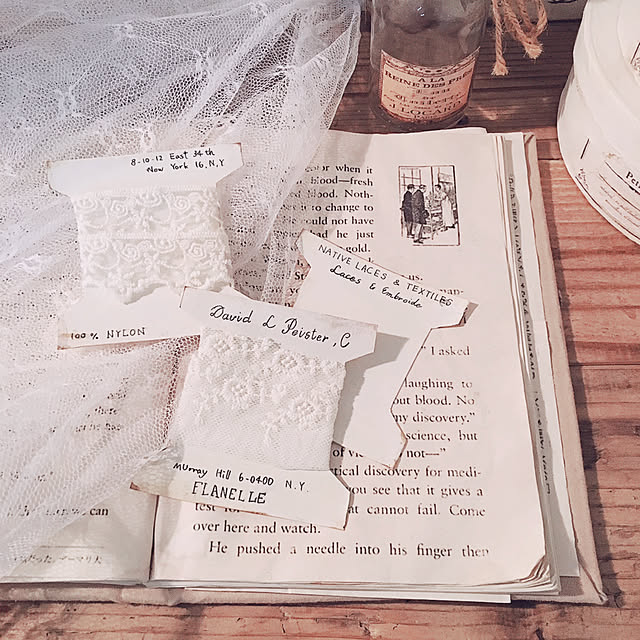 A LA
REINE DES PRÉS
J. LOCARD
8-10-12 East 34th
New York 16. N,Y
100 % NYLON
David L Peister, C
NATIVE LACES & TEXTILES
Laces & Embroide
Murray Hill 6-0400 N.Y.
FLANELLE
Pe
or when it
blood—fresh
blood. Noth-
is to change to
could not have
had he just
gold.
us.
" I asked
laughing to
out blood. No
my discovery."
science, but
not—"
tical discovery for medi-
you see that it gives a
test for
at cannot fail. Come
over here and watch.
He pushed a needle into his finger then
can